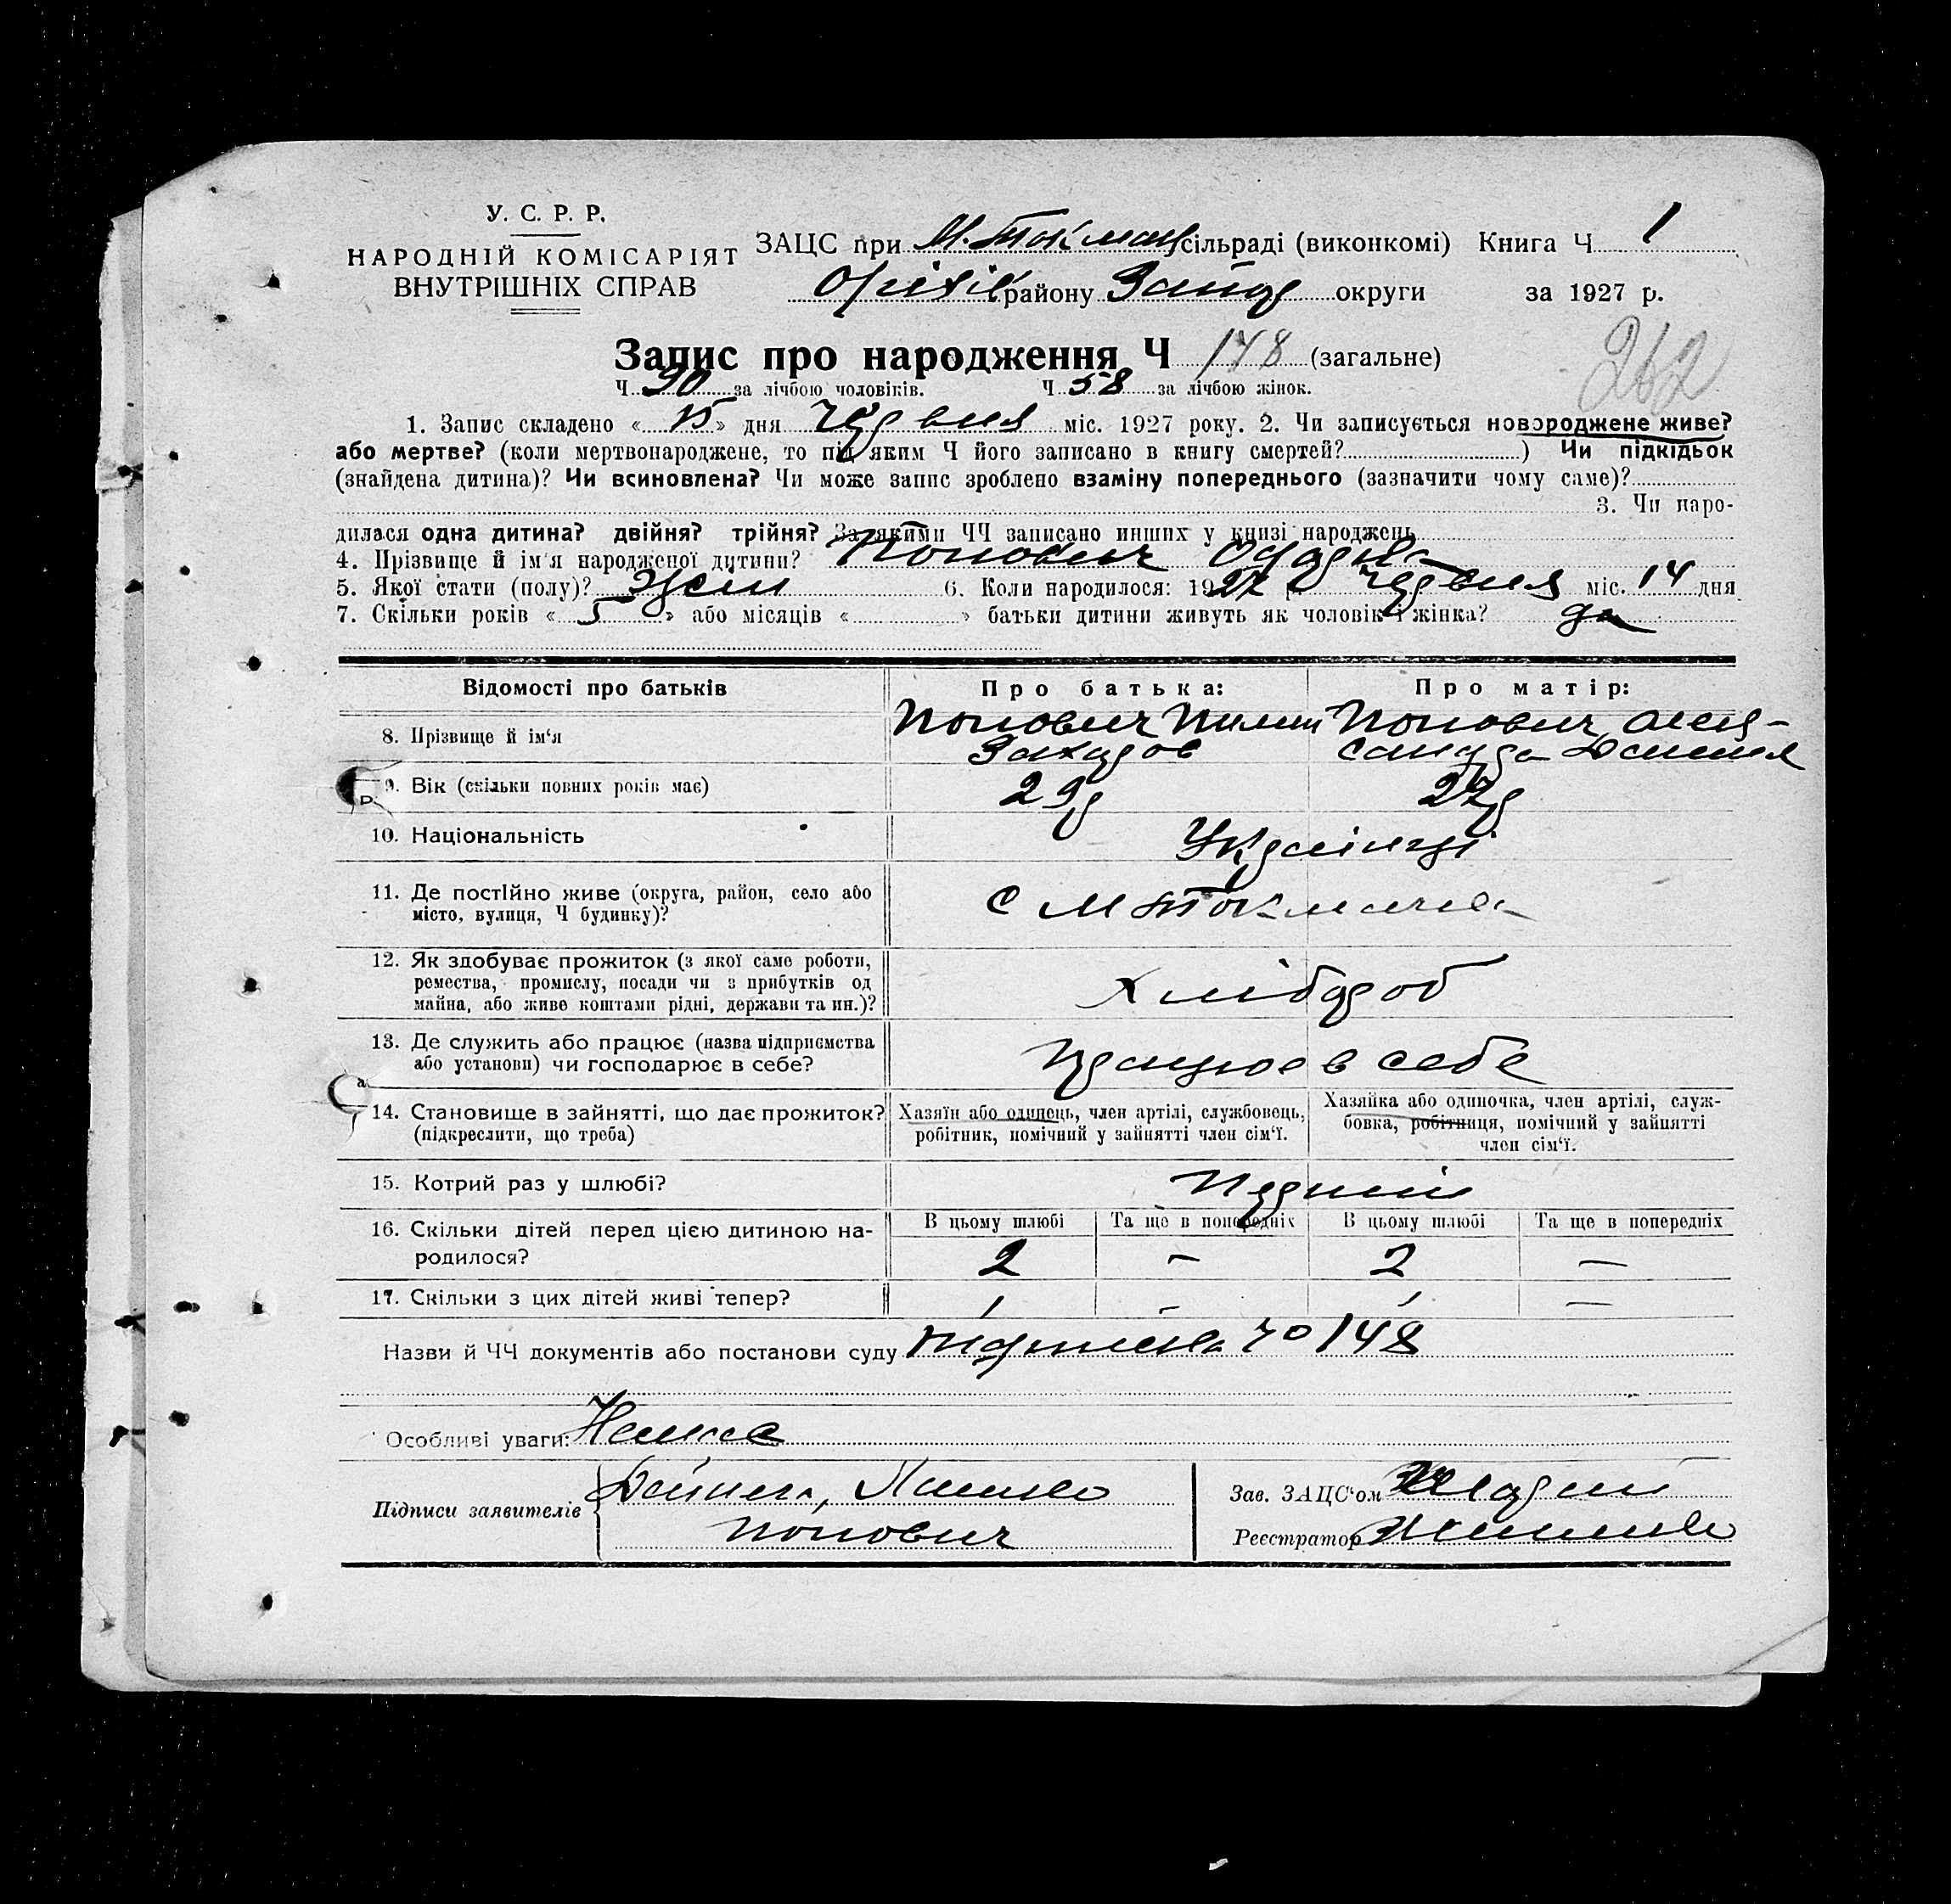 У. С. Р. Р.
НАРОДНІЙ КОМІСАРІЯТ
ВНУТРІШНІХ СПРАВ
ЗАЦС при М. Токмац сільраді (виконкомі) Книга Ч 1
Оріхів району Запор округи за 1927 р.
262
Запис про народження Ч 148 (загальне)
Ч 90 за лічбою чоловіків. Ч 58 за лічбою жінок.
1. Запис складено « 15 » дня червня міс. 1927 року. 2. Чи записується новороджене живе?
або мертве? (коли мертвонароджене, то під яким Ч його записано в книгу смертей? ) Чи підкідьок
(знайдена дитина)? Чи всиновлена? Чи може запис зроблено взаміну попереднього (зазначити чому саме)?
3. Чи наро-
дилася одна дитина? двійня? трійня? За якими ЧЧ записано инших у книзі народжень
4. Прізвище й ім'я народженої дитини? Попович
5. Якої стати (полу)? Жін 6. Коли народилося: 1927 р червня міс. 14 дня
7. Скільки років « 5 » або місяців « » батьки дитини живуть як чоловік і жінка? да
Відомості про батьків Про батька: Про матір:
8. Прізвище й ім'я Попович Пилип Попович Олек-
Захаров сандра Данил
9. Вік (скільки повних років має) 29р 27р
10. Національність Українці
11. Де постійно живе (округа, район, село або
місто, вулиця, Ч будинку)? с М Токмачка
12. Як здобуває прожиток (з якої саме роботи,
ремества, промислу, посади чи з прибутків од
майна, або живе коштами рідні, держави та ин.)? Хлібороб
13. Де служить або працює (назва підприємства
або установи) чи господарює в себе? Працює в себе
14. Становище в зайнятті, що дає прожиток?
(підкреслити, що треба)
Хазяїн або одинець, член артілі, службовець,
робітник, помічний у зайнятті член сім'ї.
Хазяйка або одиночка, член артілі, служ-
бовка, робітниця, помічний у зайнятті
член сім'ї.
15. Котрий раз у шлюбі? Перший
16. Скільки дітей перед цією дитиною на-
родилося?
В цьому шлюбі Та ще в попередніх В цьому шлюбі Та ще в попередніх
2 — 2 —
17. Скільки з цих дітей живі тепер? 1 - 1 —
Назви й ЧЧ документів або постанови суду 148
Особливі уваги: Немає
Підписи заявителів
Попович
Зав. ЗАЦС'ом
Реєстратор